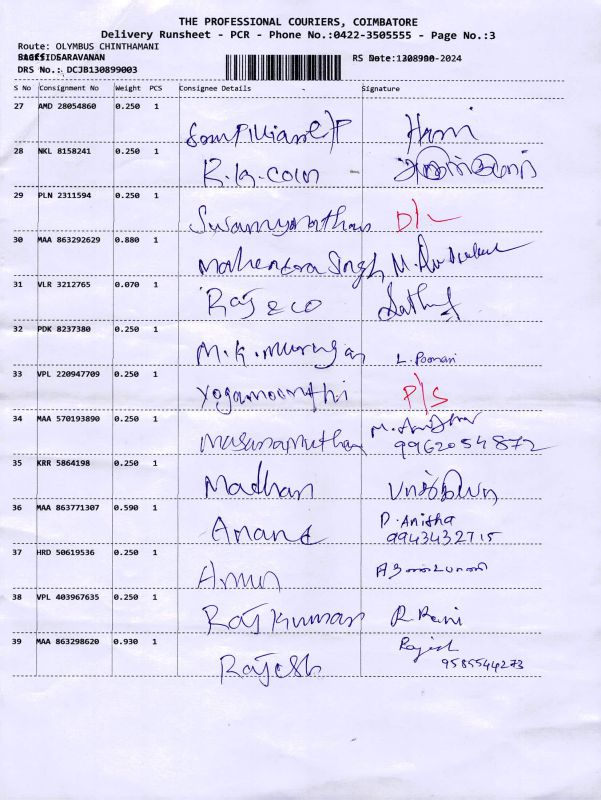 THE PROFESSIONAL COURIERS, COIMBATORE
Delivery Runsheet - PCR - Phone No.:0422-3505555 - Page No.:3
Route: OLYMBUS CHINTHAMANI
SARAVANAN
RS Date: -2024
DRS No.: DCJB130899003
S No Consignment No Weight PCS Consignee Details Signature
27 AMD 28054860 0.250 1
28 NKL 8158241 0.250 1 R.K.
29 PLN 2311594 0.250 1 Swamynathan D/L
30 MAA 863292629 0.880 1 Mahendra Singh M.
31 VLR 3212765 0.070 1 Raj & co
32 PDK 8237380 0.250 1 M.K.Murugan L.Poorani
33 VPL 220947709 0.250 1 Yogamoorthi P/S
34 MAA 570193890 0.250 1 Masanamuthan M.
9962054872
35 KRR 5864198 0.250 1 Madhan
36 MAA 863771307 0.590 1 Anand D.Anisha
9943432715
37 HRD 50619536 0.250 1 Arun
38 VPL 403967635 0.250 1 Rajkumar R.Rani
39 MAA 863298620 0.930 1 Rajesh Rajesh
9585544273